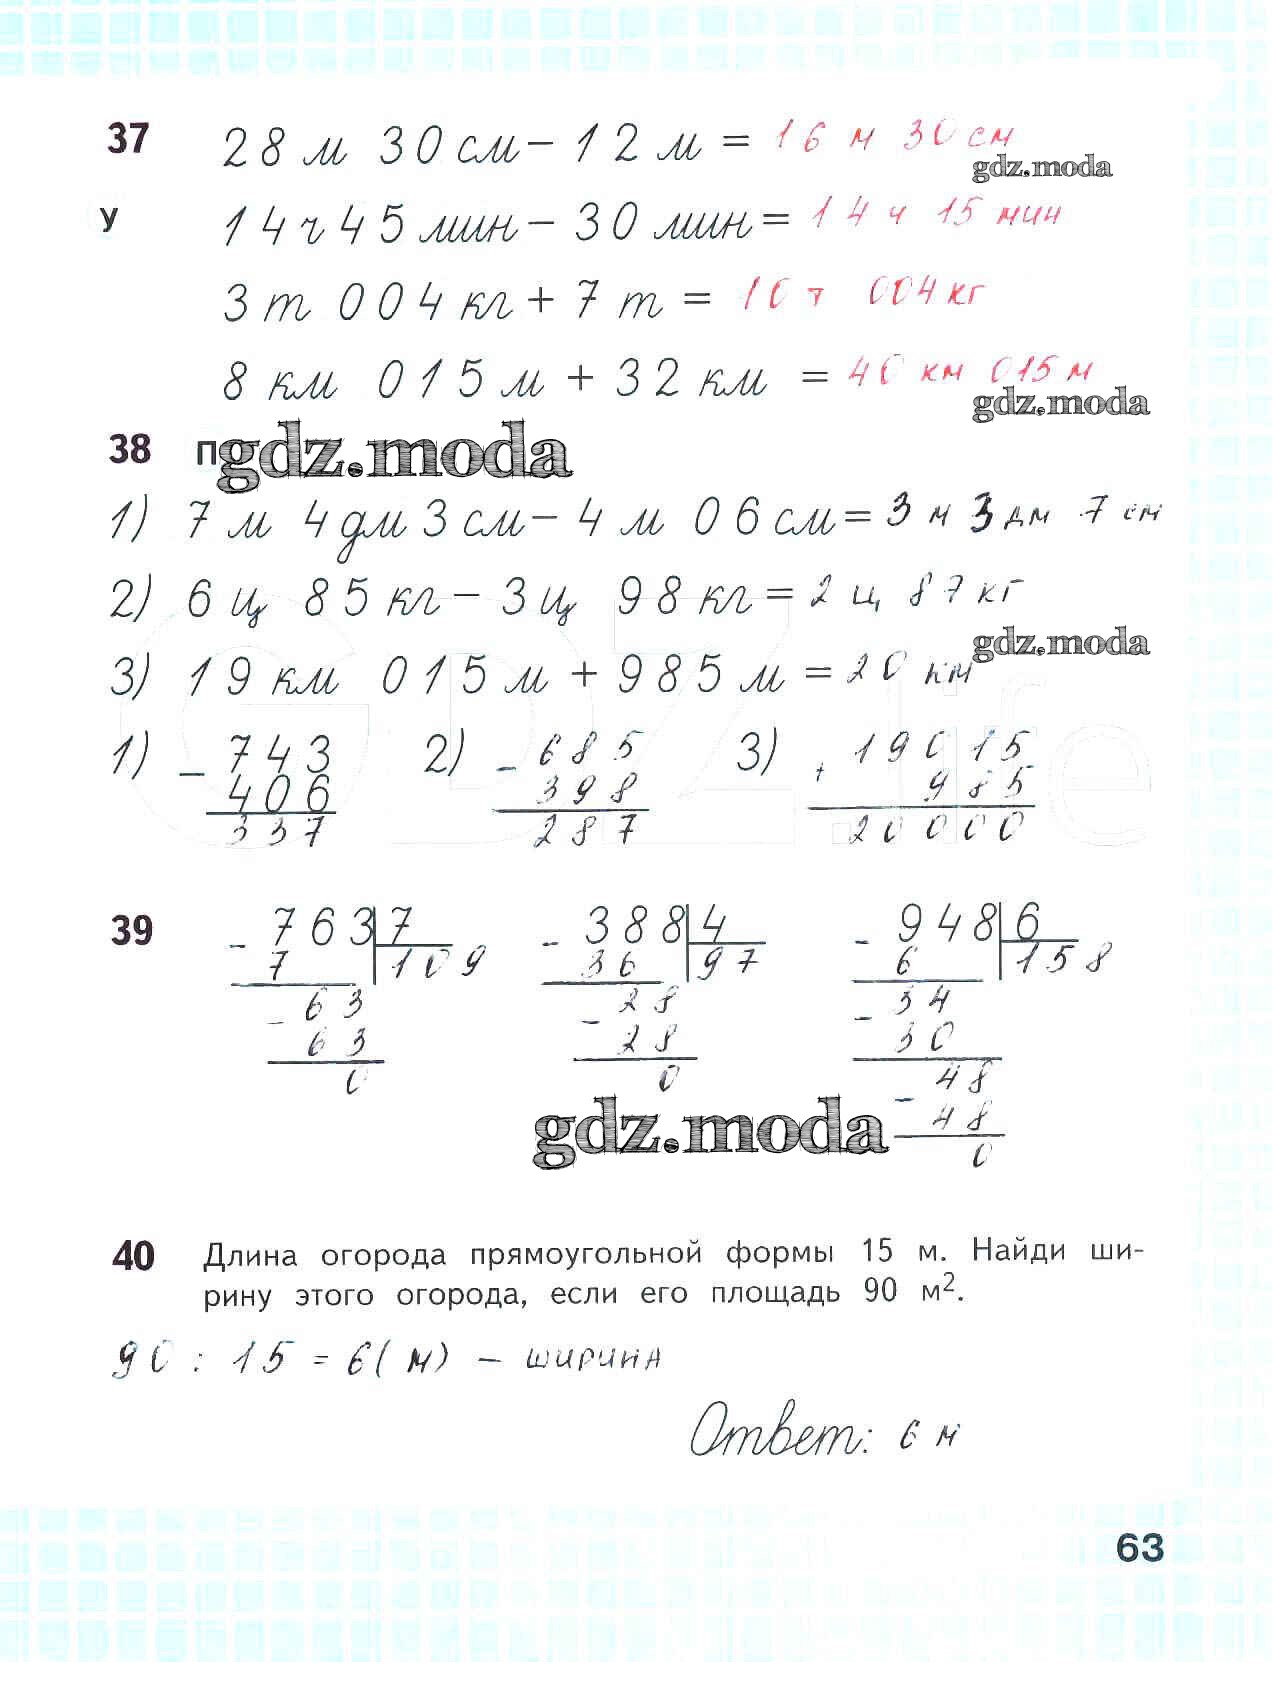 37 28 м 30 см – 12 м = 16 м 30 см
gdz.moda
У 14 ч 45 мин – 30 мин = 14 ч 15 мин
3 т 004 кг + 7 т = 10 т 004 кг
8 км 015 м + 32 км = 40 км 015 м
gdz.moda
38 П gdz.moda
1) 7 м 4 дм 3 см – 4 м 06 см = 3 м 3 дм 7 см
2) 6 ц 85 кг – 3 ц 98 кг = 2 ц 87 кг
gdz.moda
3) 19 км 015 м + 985 м = 20 км
GDZ.life
1) – 743 2) – 685 3) + 19015
406 398 985
337 287 20000
39 – 763 7 – 388 4 – 948 6
7 109 36 97 6 158
– 63 – 28 – 34
63 28 30
0 0 48
gdz.moda – 48
0
40 Длина огорода прямоугольной формы 15 м. Найди ши-
рину этого огорода, если его площадь 90 м².
90 : 15 = 6 (м) – ширина
Ответ: 6 м
63